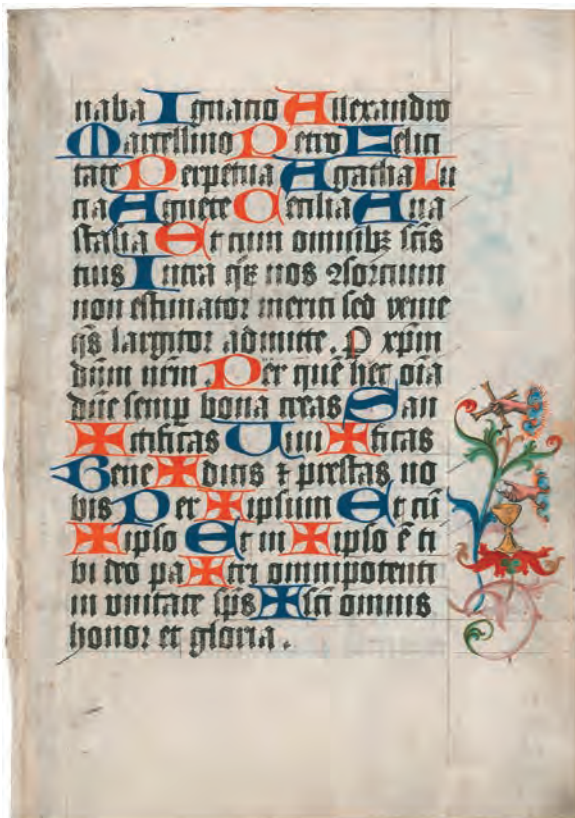 naba Ignatio Allexandro
Marcellino Petro Felici
tate Perpetua Agatha Lu
cia Agnete Cecilia Ana
stasia Et cum omnibꝫ scīs
tuis Intra qͦꝫ nos ꝯsortium
non estimator meriti sed venie
qs̄ largitor admitte . P xp̄m
dn̄m nr̄m . Per quē hec oīa
dn̄e semꝑ bona creas San
✠ ctificas Uiui ✠ ficas
Bene ✠ dicis ⁊ prestas no
bis Per ✠ ipsum Et cū
✠ ipso Et in ✠ ipso ē ti
bi deo pa ✠ tri omnipotenti
in unitate sp̄s ✠ scī omnis
honor et gloria .